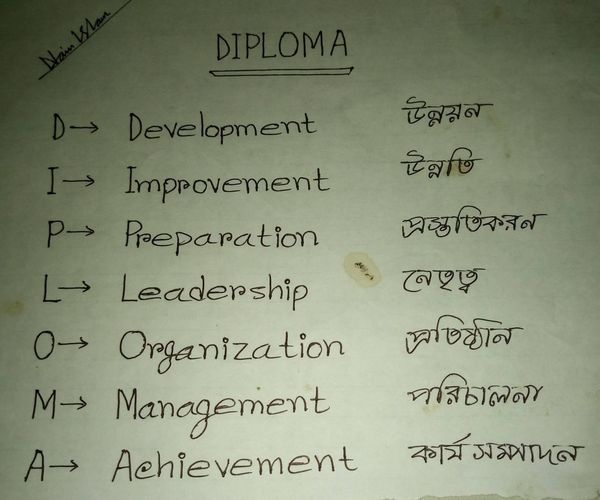 DIPLOMA
D→ Development উন্নয়ন
I→ Improvement উন্নতি
P→ Preparation প্রস্তুতিকরন
L→ Leadership নেতৃত্ব
O→ Organization প্রতিষ্ঠান
M→ Management পরিচালনা
A→ Achievement কার্য সম্পাদন